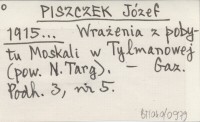 PISZCZEK Józef
1915... Wrażenia z poby-
tu Moskali w Tylmanowej
(pow. N. Targ). – Gaz.
Podh. 3, nr 5.